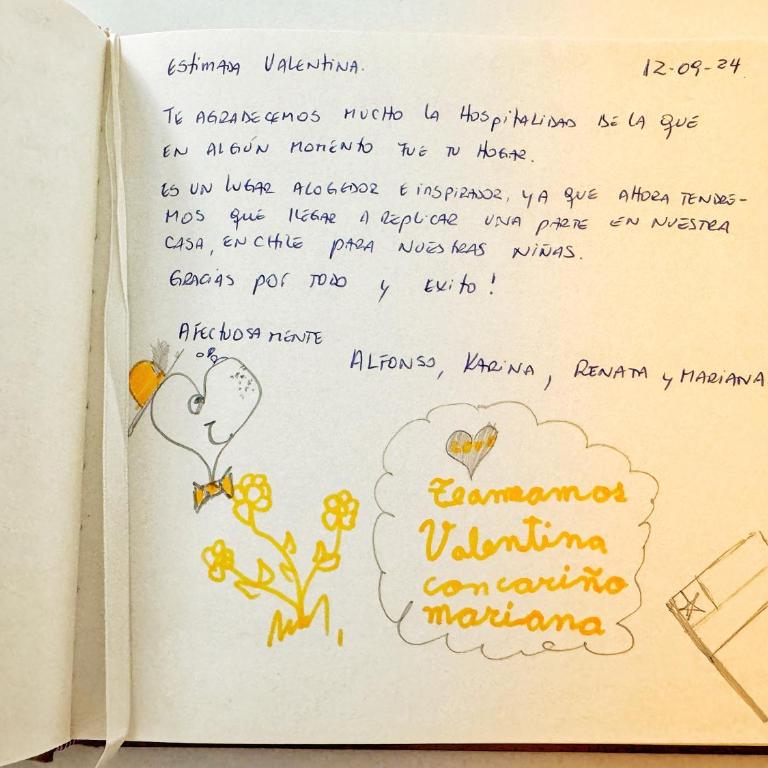 Estimada Valentina.
12-09-24
TE AGRADECEMOS MUCHO LA HOSPITALIDAD DE LA QUE
EN ALGÚN MOMENTO FUE TU HOGAR.
ES UN LUGAR ACOGEDOR E INSPIRADOR, YA QUE AHORA TENDRE-
MOS QUE LLEGAR A REPLICAR UNA PARTE EN NUESTRA
CASA, EN CHILE PARA NUESTRAS NIÑAS.
GRACIAS POR TODO Y EXITO!
AFECTUOSAMENTE
ALFONSO, KARINA, RENATA Y MARIANA
LOVE
teamamos
Valentina
con cariño
mariana